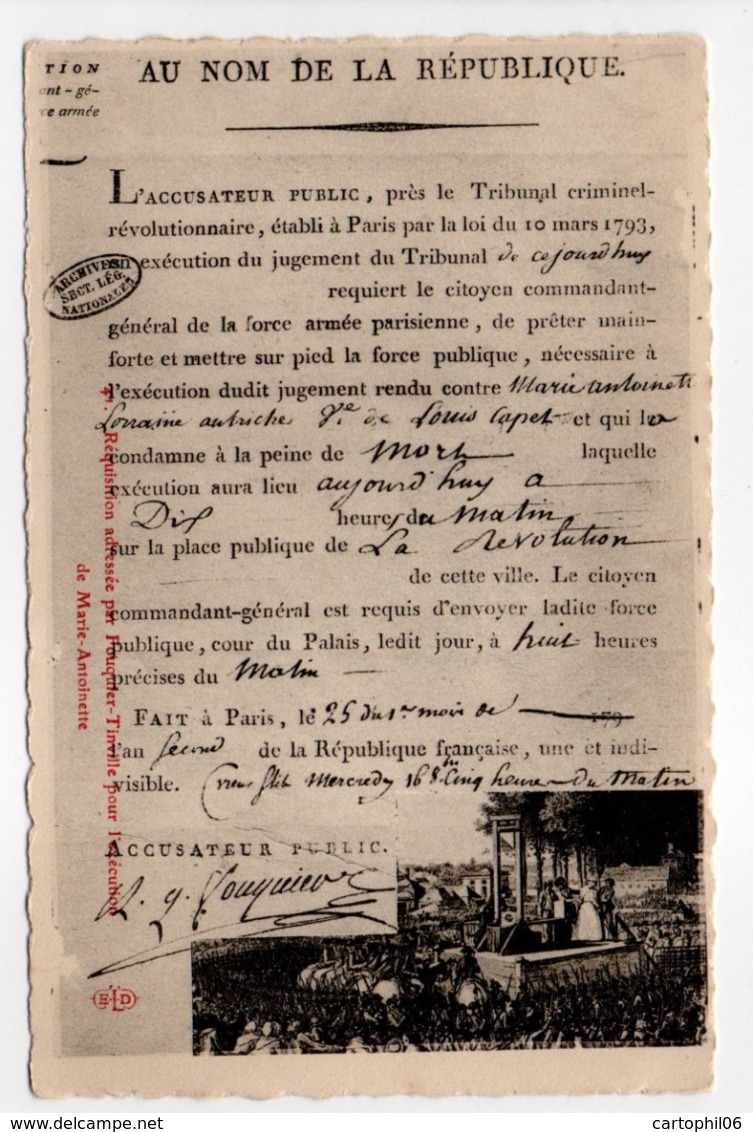 TION
ant-gé-
ce armée
AU NOM DE LA RÉPUBLIQUE.
L'ACCUSATEUR PUBLIC, près le Tribunal criminel-
révolutionnaire, établi à Paris par la loi du 10 mars 1793,
en exécution du jugement du Tribunal de cejourdhuy
requiert le citoyen commandant-
général de la force armée parisienne, de prêter main-
forte et mettre sur pied la force publique, nécessaire à
l'exécution dudit jugement rendu contre Marie antoinett
Lorraine autriche Ve de Louis Capet et qui la
condamne à la peine de Mort laquelle
exécution aura lieu aujourd'huy a
Dix heures du matin
sur la place publique de La Revolution
de cette ville. Le citoyen
commandant-général est requis d'envoyer ladite force
publique, cour du Palais, ledit jour, à huit heures
précises du Matin
FAIT à Paris, le 25 du 1er mois de 179
l'an second de la République française, une et indi-
visible. Mercredy 16 8bre Cinq heures du Matin
ACCUSATEUR PUBLIC.
A. q. Fouquier
ARCHIVES
SECT. LÉG.
NATIONALES
Réquisition adressée par Fouquier-Tinville pour l'exécution
de Marie-Antoinette
ELD
cartophil06